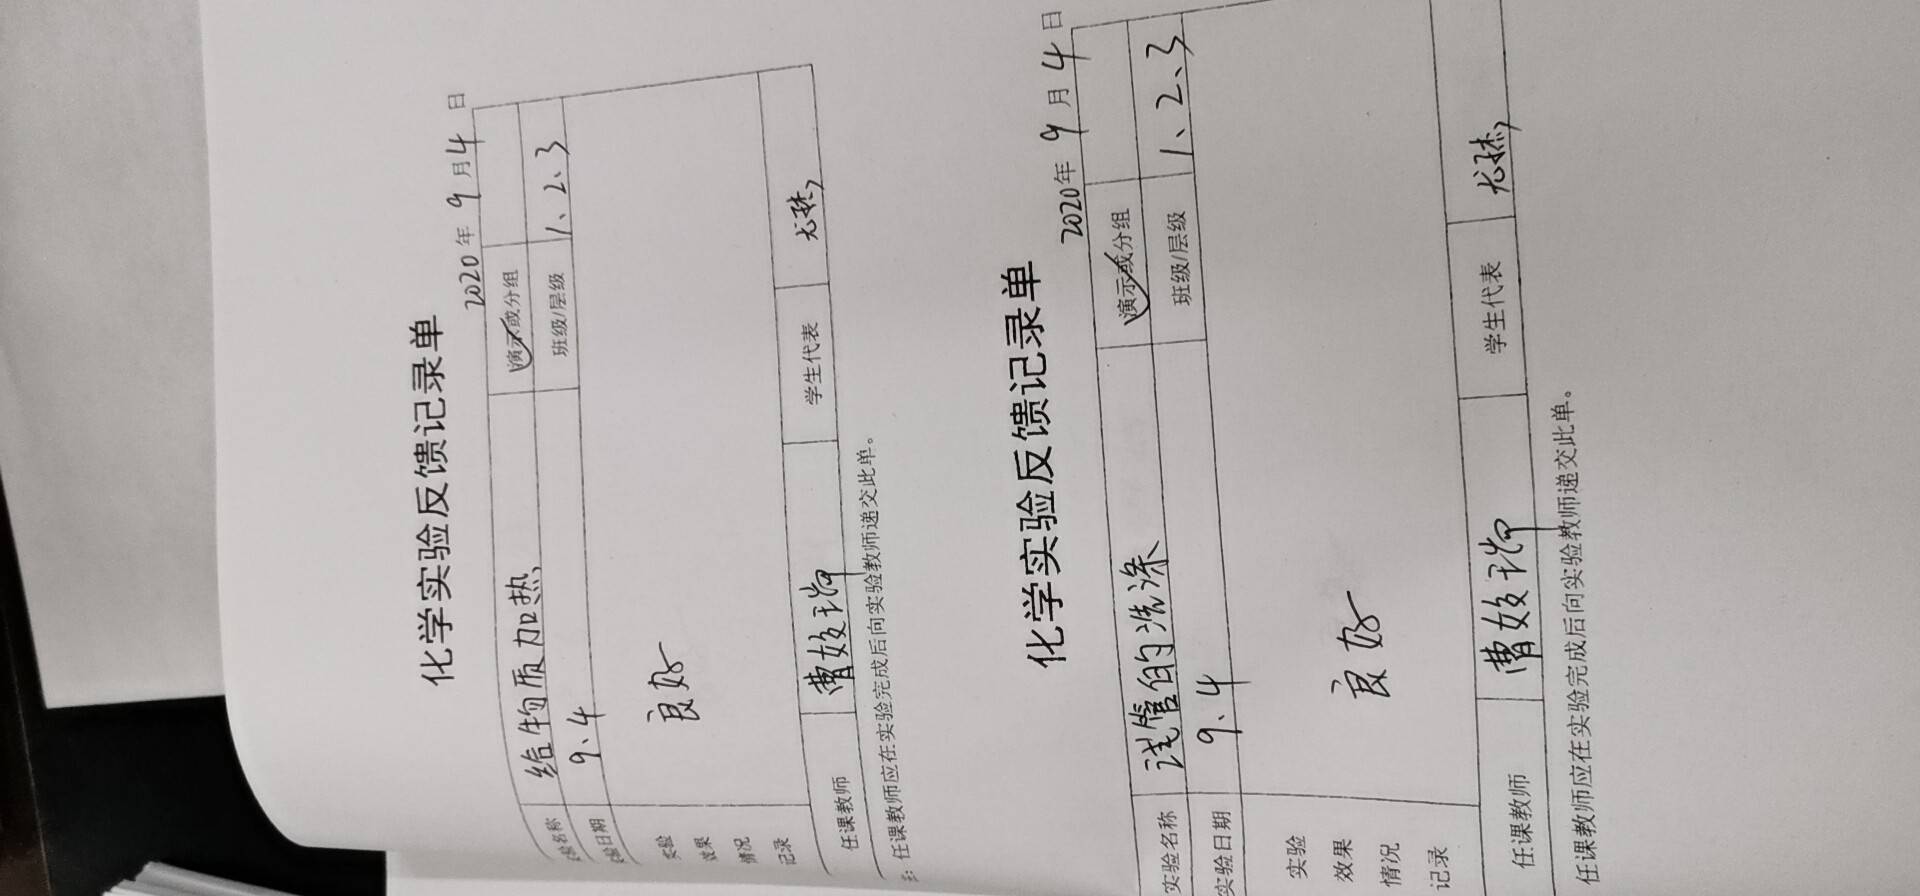 化学实验反馈记录单
2020年 9月4日
实验名称 给物质加热 演示或分组
实验日期 9.4 班级/层级 1、2、3
实验
效果
情况
记录
良好
任课教师 学生代表
任课教师应在实验完成后向实验教师递交此单。
化学实验反馈记录单
2020年 9月4日
实验名称 试管的洗涤 演示或分组
实验日期 9.4 班级/层级 1、2、3
实验
效果
情况
记录
良好
任课教师 学生代表
任课教师应在实验完成后向实验教师递交此单。